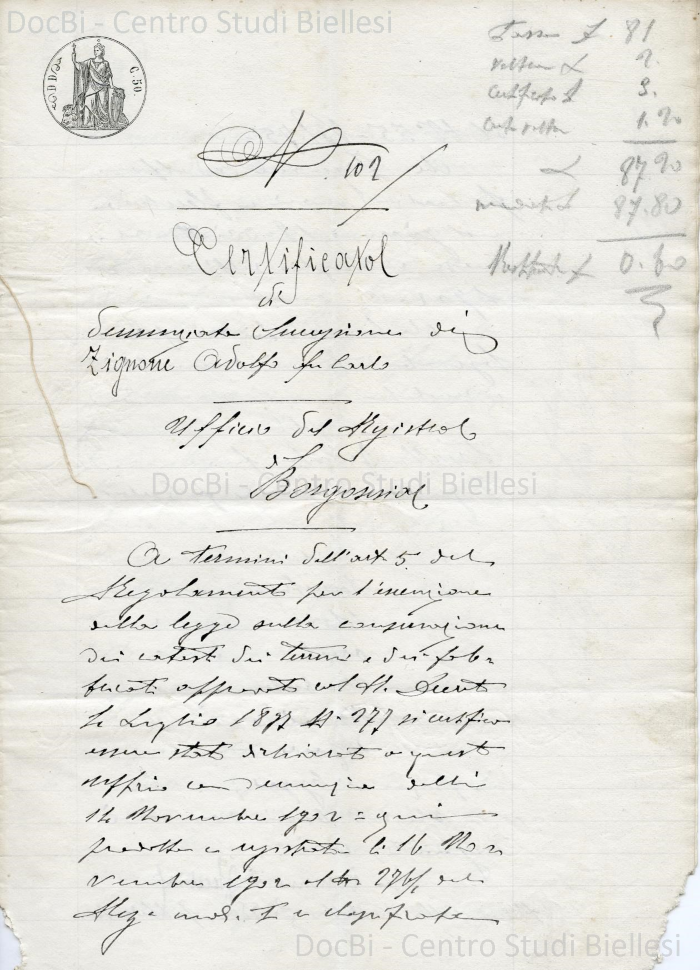 DocBi - Centro Studi Biellesi
C. 50.
Tassa £ 81
Volture £ 2.
Certificato £ 3.
1.20
£ 87 20
87.80
£ 0.60
N. 102
Certificato
di
denunciata Successione di
Zignone Adolfo fu Carlo
Ufficio del Registro
di
DocBi - Centro Studi Biellesi
Borgosesia
A termini dell'art. 5 del
Regolamento per l'esecuzione
della legge sulla conservazione
dei catasti dei terreni e dei fab=
bricati approvato col R. Decreto
Luglio 1877 N. 277 si certifica
essere stati dichiarati a questo
Ufficio con denuncia delli
14 Novembre 1902 = qui
prodotta e registrata li 16 No=
vembre 1902 al N. del
mod. e
DocBi - Centro Studi Biellesi